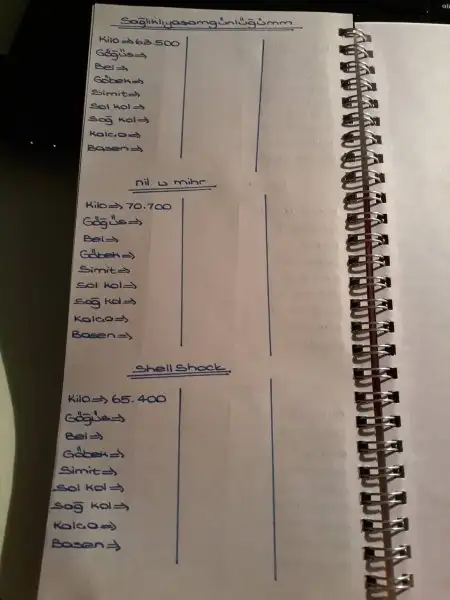 Sağlıklıyasamgünlüğümm
Kilo⇒68.500
Göğüs⇒
Bel⇒
Göbek⇒
Simit⇒
Sol kol⇒
Sağ kol⇒
Kalça⇒
Basen⇒
nil u mihr
Kilo⇒70.700
Göğüs⇒
Bel⇒
Göbek⇒
Simit⇒
Sol kol⇒
Sağ kol⇒
Kalça⇒
Basen⇒
Shell Shock
Kilo⇒65.400
Göğüs⇒
Bel⇒
Göbek⇒
Simit⇒
Sol kol⇒
Sağ kol⇒
Kalça⇒
Basen⇒